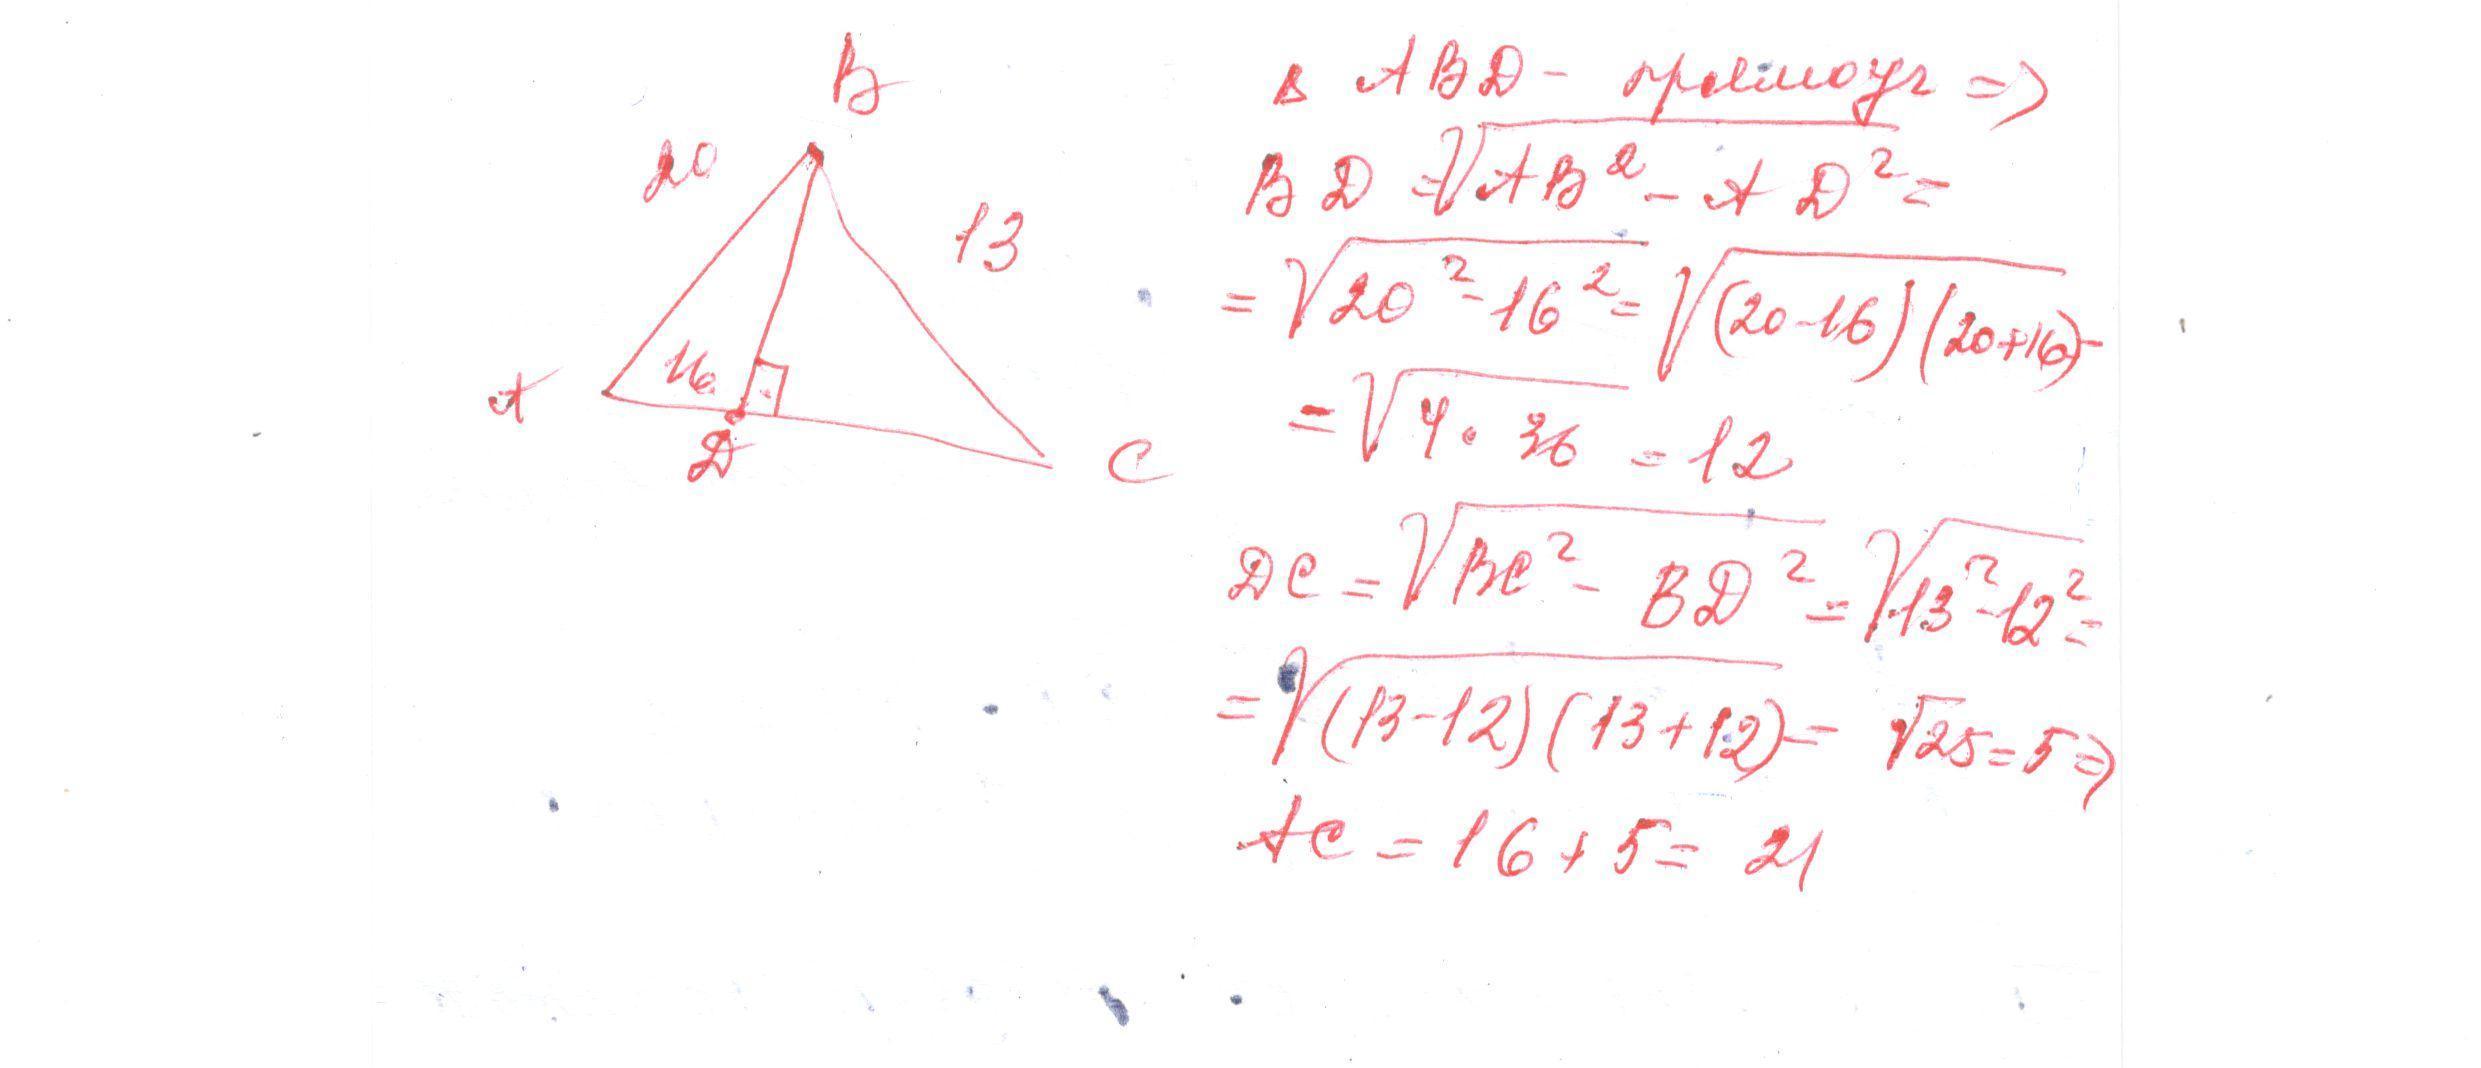 B
20
13
A
16
D
C
Δ ABD - прямоуг =>
BD = √AB² - AD² =
= √20² - 16² = √(20-16)(20+16) -
= √4 · 36 = 12
DC = √BC² - BD² = √13² - 12² =
= √(13-12)(13+12) = √25 = 5 =>
AC = 16 + 5 = 21